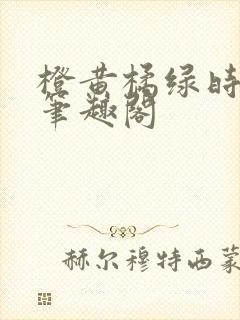 橙黄橘绿时
笔趣阁
赫尔穆特西蒙